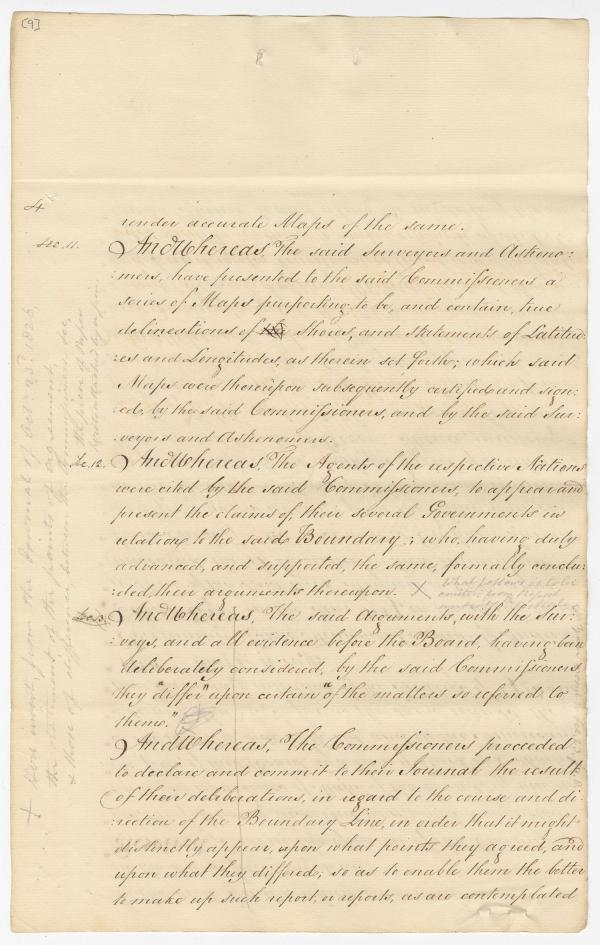 [9]
4
render accurate Maps of the same.
Sec. 11. And Whereas, The said Surveyors and Astrono:
:mers, have presented to the said Commissioners a
series of Maps purporting to be, and contain, true
delineations of Shores, and statements of Latitu:
:des and Longitudes, as therein set forth; which said
Maps were thereupon subsequently certified and sign:
:ed, by the said Commissioners, and by the said Sur:
:veyors and Astronomers.
Sec. 12. And Whereas, The Agents of the respective Nations
were cited by the said Commissioners, to appear and
present the claims of, their several Governments in
relation to the said Boundary; who, having duly
advanced, and supported, the same, formally conclu:
:ded, their arguments thereupon. X
What follows is to be
omitted from Report
Sec. 13. And Whereas, The said Arguments, with the Sur:
:veys, and all evidence before the Board, having been
deliberately considered, by the said Commissioners,
they "differ" upon certain "of the matters so referred to
them."
And Whereas, The Commissioners proceeded
to declare and commit to their Journal the result
of their deliberations, in regard to the course and di:
:rection of the Boundary Line, in order that it might
distinctly appear, upon what points they agreed, and
upon what they differed; so as to enable them the better
to make up such report, or reports, as are contemplated
+ Here insert, from the Journal of Oct. 23d. 1826,
the statement of the points of agreement,
& those of difference between